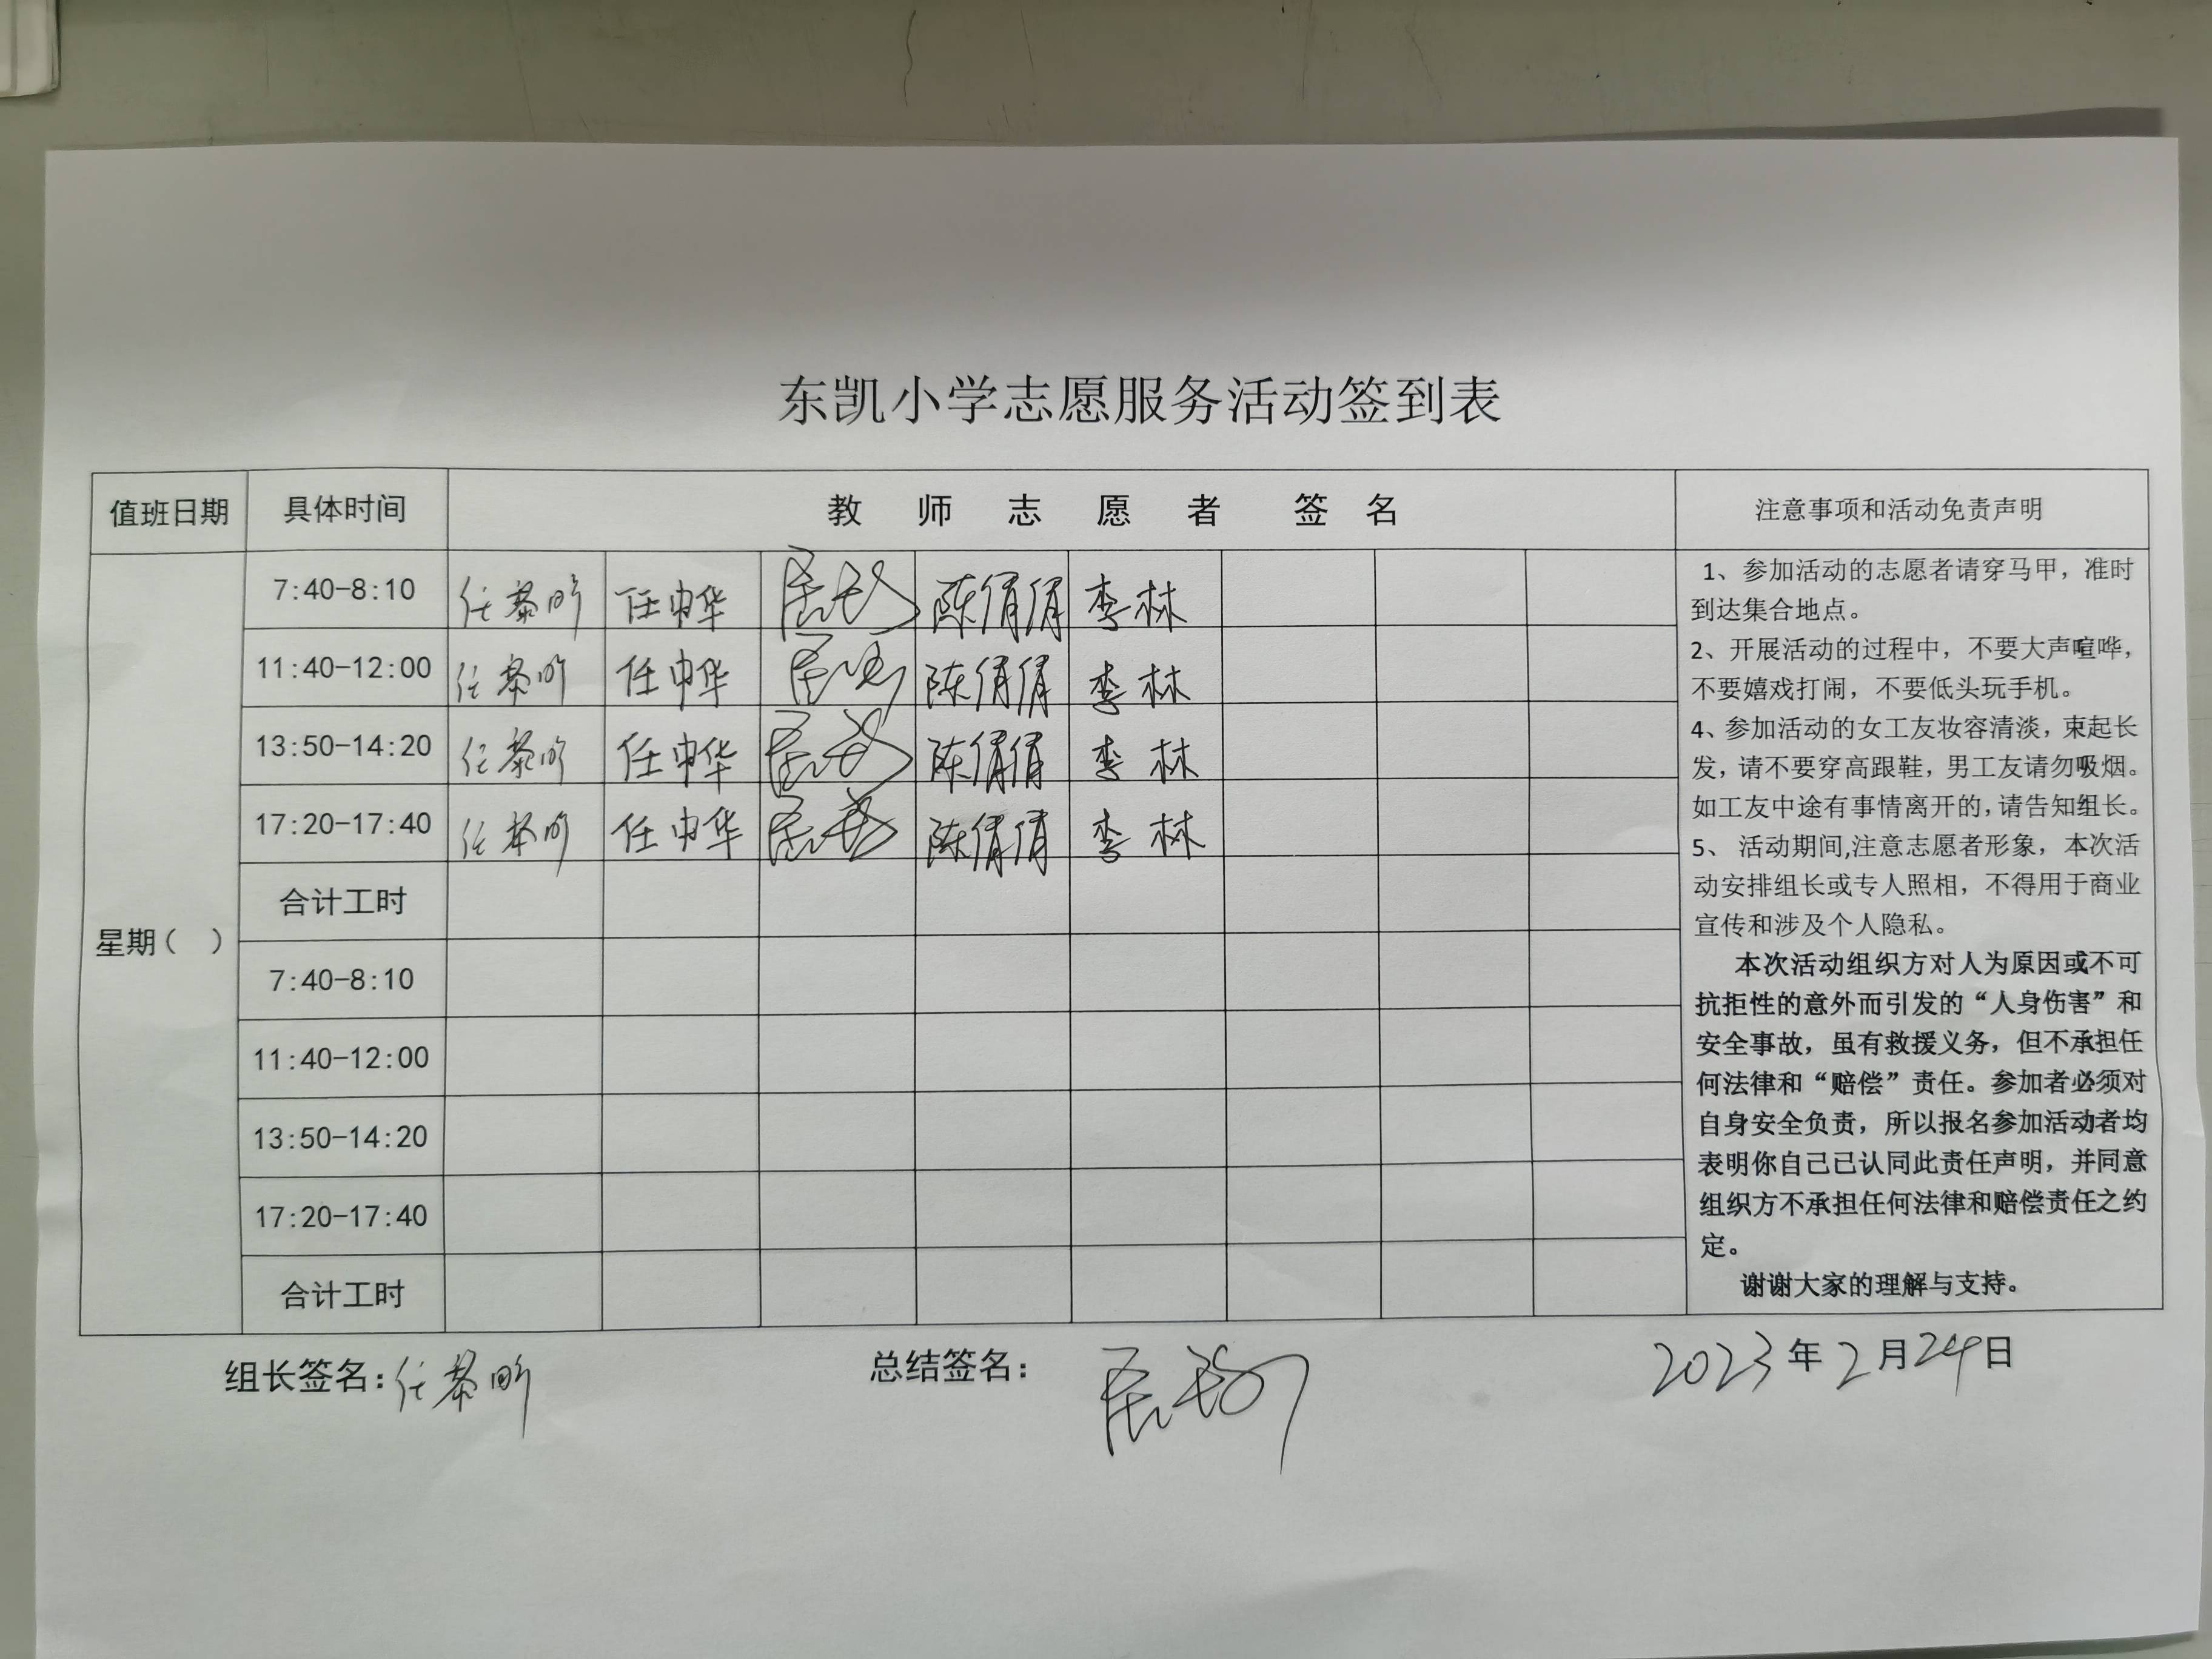 东凯小学志愿服务活动签到表
值班日期 具体时间 教师志愿者 签名 注意事项和活动免责声明
星期( )
7:40-8:10 任 任中华 陈倩倩 李林
11:40-12:00 任 任中华 陈倩倩 李林
13:50-14:20 任 任中华 陈倩倩 李林
17:20-17:40 任 任中华 陈倩倩 李林
合计工时
7:40-8:10
11:40-12:00
13:50-14:20
17:20-17:40
合计工时
1、参加活动的志愿者请穿马甲，准时
到达集合地点。
2、开展活动的过程中，不要大声喧哗，
不要嬉戏打闹，不要低头玩手机。
4、参加活动的女工友妆容清淡，束起长
发，请不要穿高跟鞋，男工友请勿吸烟。
如工友中途有事情离开的，请告知组长。
5、 活动期间,注意志愿者形象，本次活
动安排组长或专人照相，不得用于商业
宣传和涉及个人隐私。
本次活动组织方对人为原因或不可
抗拒性的意外而引发的“人身伤害”和
安全事故，虽有救援义务，但不承担任
何法律和“赔偿”责任。参加者必须对
自身安全负责，所以报名参加活动者均
表明你自己己认同此责任声明，并同意
组织方不承担任何法律和赔偿责任之约
定。
谢谢大家的理解与支持。
组长签名：任 总结签名： 2023年2月24日